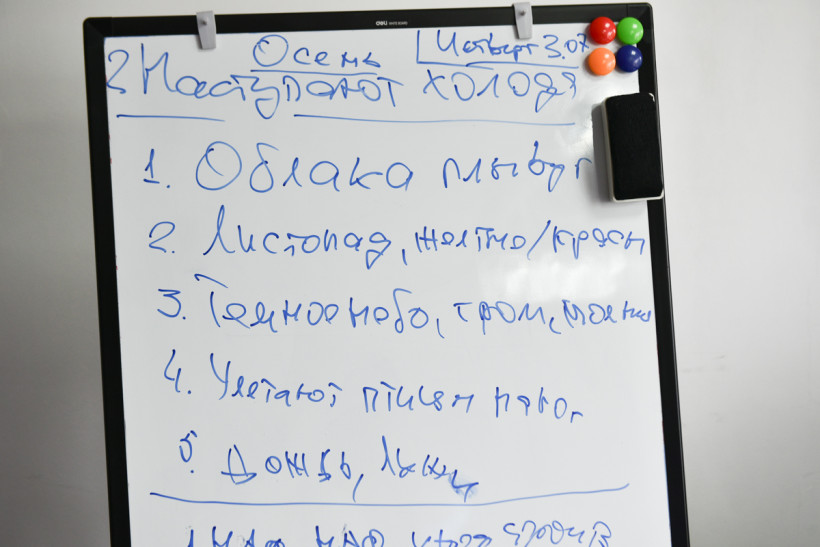 deli
Осень Четверг 3.07
Наступают холода
1. Облака плывут
2. Листопад, желтые/красн
3. Темное небо, гром, молния
4. Улетают птицы на юг
5. Дождь, лужи